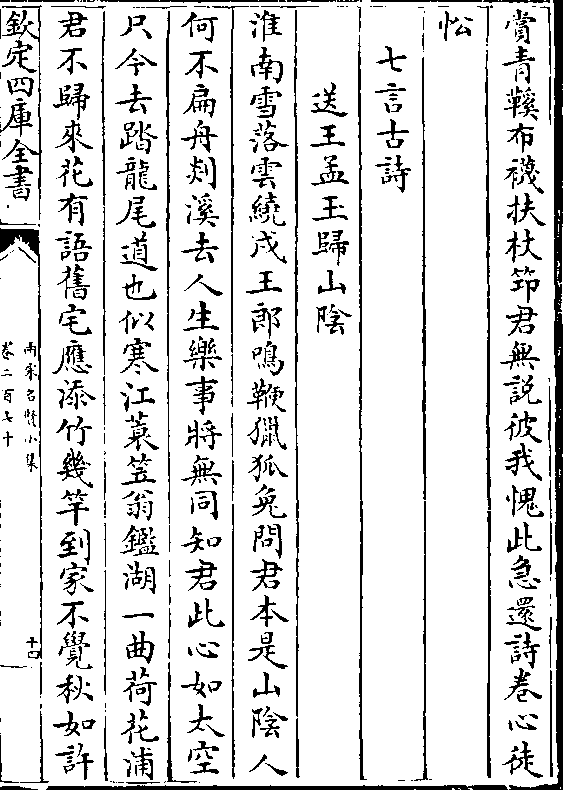 賞青鞵布襪扶杖筇君無説彼我愧此急還詩卷心徒
忪
七言古詩
送王孟玉歸山陰
淮南雪落雲繞戍王郎鳴鞭獵狐兔問君本是山陰人
何不扁舟剡溪去人生樂事將無同知君此心如太空
只今去踏龍尾道也似寒江蓑笠翁鑑湖一曲荷花浦
君不歸來花有語舊宅應添竹幾竿到家不覺秋如許
欽定四庫全書
兩宋名賢小集
卷二百七十
十四